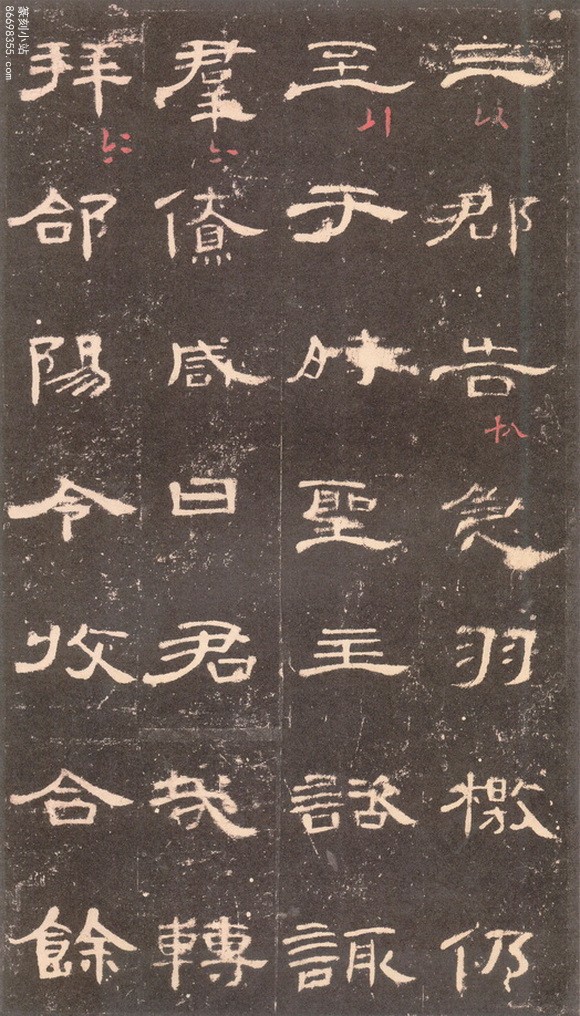 三郡告急羽檄仍
至于時聖主諮諏
羣僚咸曰君哉轉
拜郃陽令收合餘
篆刻小站
86698355.com